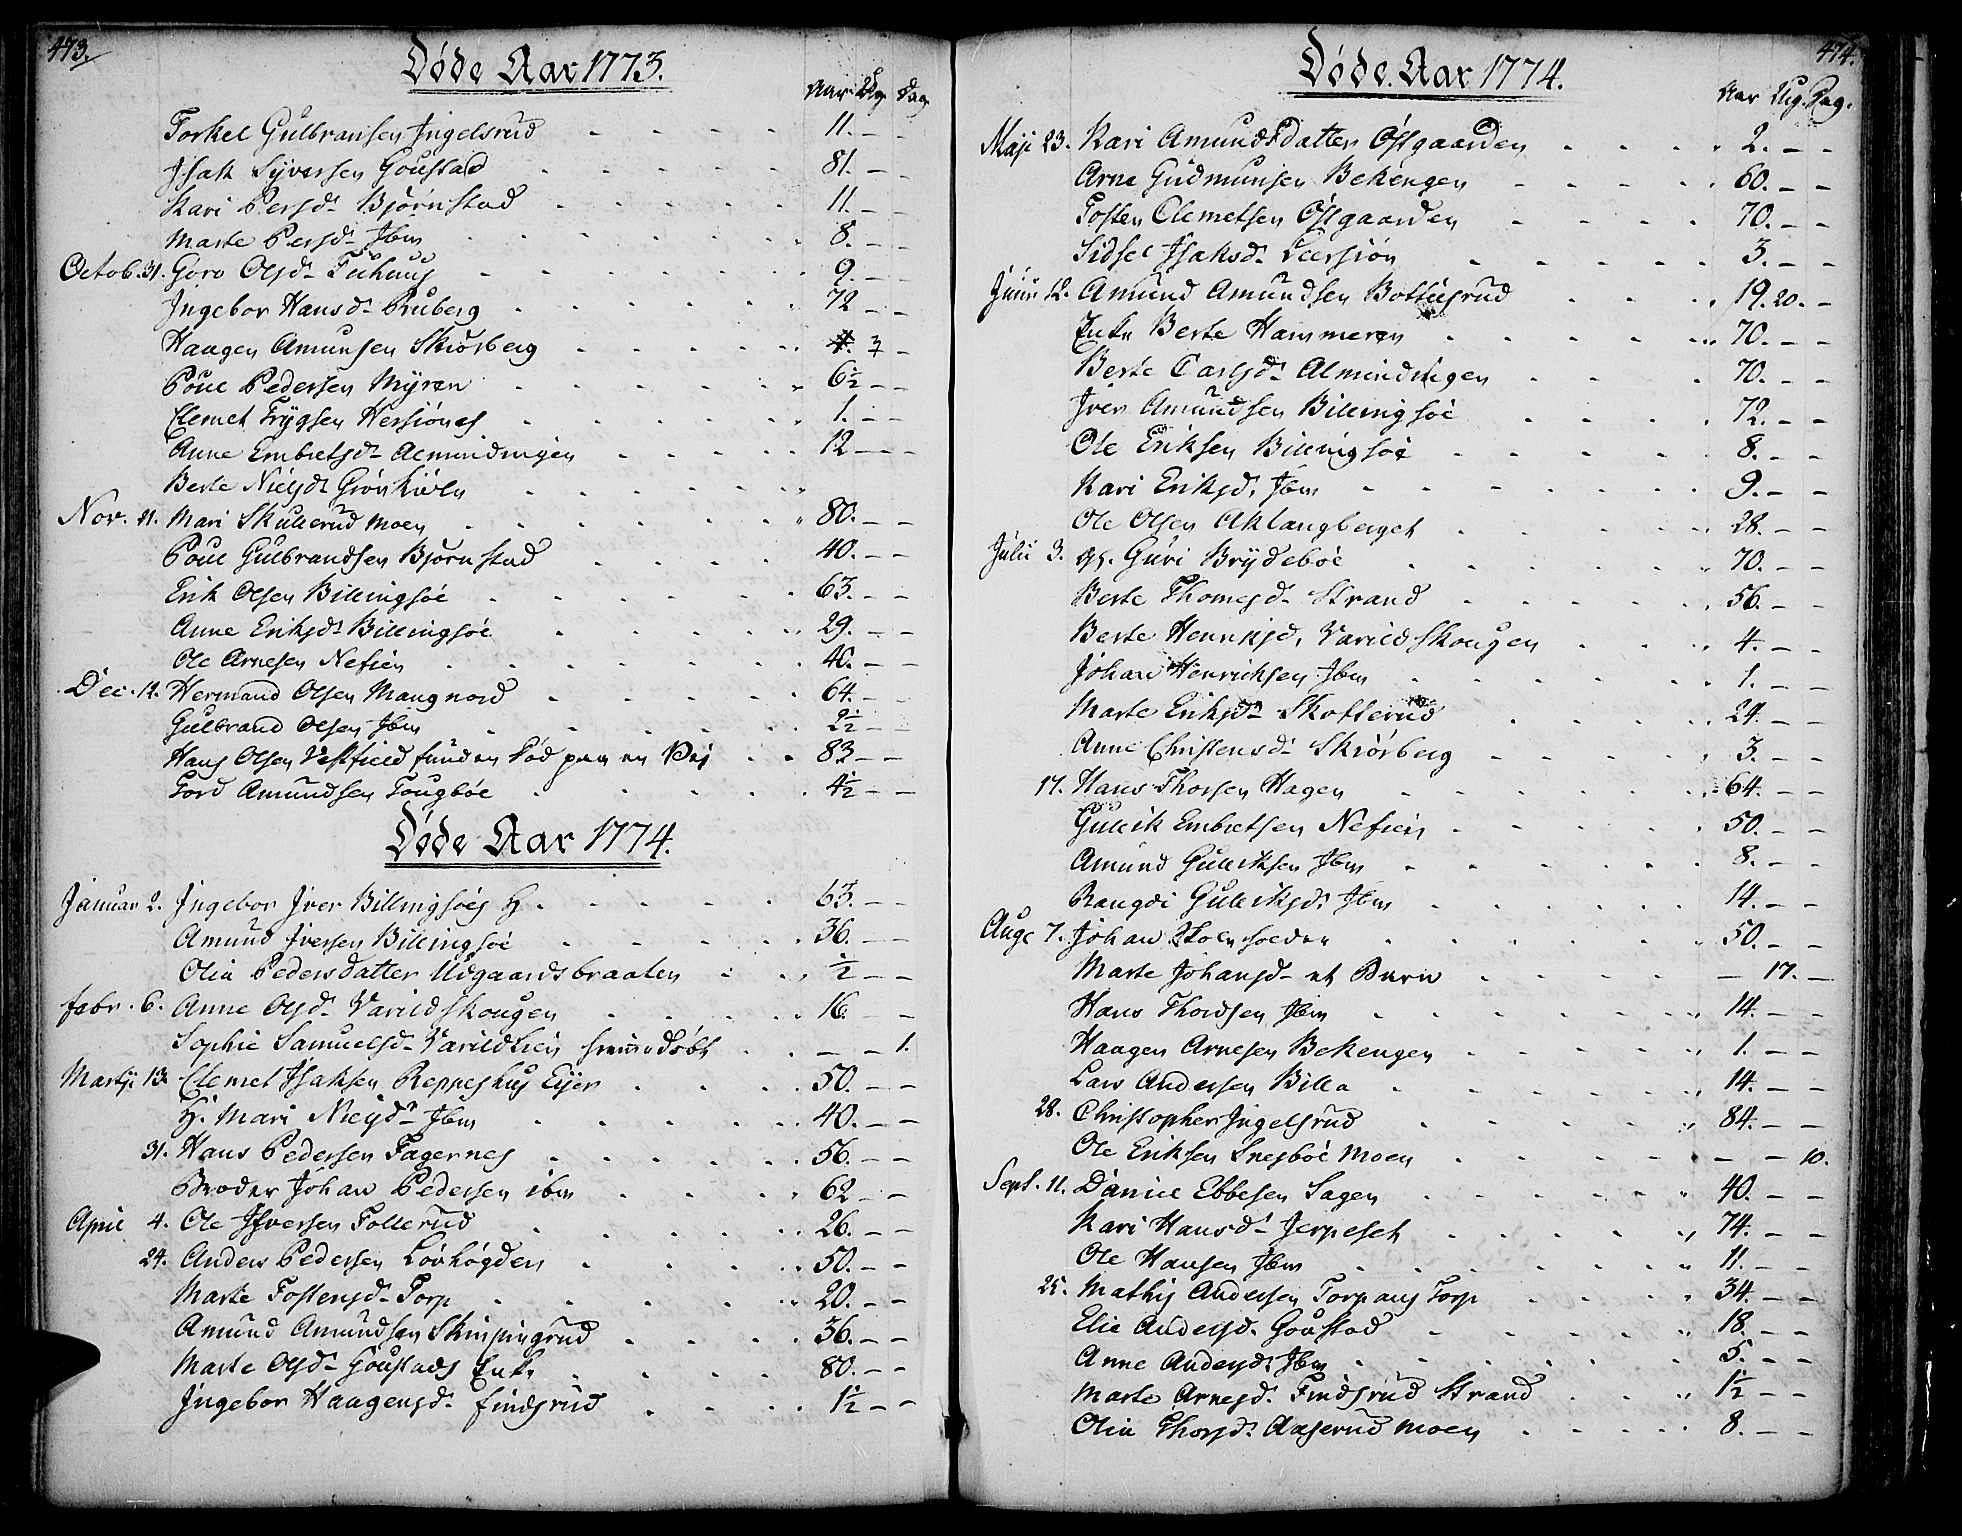 473.
Døde Aar 1773.
Aar Ug. Dag.
Torkel Gulbransen Ingelsrud - - - - 11. - -
Isak Syversen Goustad - - - - 81. - -
Kari Persd. Bjørnstad - - - - 11. - -
Marte Persd. Ibm - - - - 8. - -
Octob. 31. Goro Olsd. - - - - 9. - -
Ingebor Hansd. Ruberg - - - - 72 - -
Haagen Amunsen Skiørberg - - - - 7 -
Poul Pedersen Myren - - - - 6½ - -
Clemet Trygsen - - - - 1. - -
Anne Embretsd. Almindingen - - - - 12 - -
Berte Nielsd. - - - -
Nov. 21. Mari Skullerud moen - - - - 80. - -
Poul Gulbrandsen Bjørnstad - - - - 40. - -
Erik Olsen Billingsøe - - - - 63. - -
Anne Eriksd. Billingsøe - - - - 29. - -
Ole Arnesen Nefien - - - - 40. - -
Dec. 12. Hermand Olsen Mangnord - - - - 64. - -
Gulbrand Olsen Ibm - - - - 2½ - -
Hans Olsen Vestfield funden Død paa en Vej - - 83 - -
Tord Amundsen Tougbøe - - - - 4½ - -
Døde Aar 1774.
Januar 2. Ingebor Iver Billingsøes H. - - - - 63. - -
Amund Iversen Billingsøe - - - - 36. - -
Olia Pedersdatter Udgaardsbraaten - - ½ - -
Febr. 6. Anne Olsd. Varildskougen - - - - 16. - -
Sophie Samuelsd. Varildlien hiemedøbt - - - - 1.
Martji 13. Clemet Isaksen Reppeshus Eyer - - - - 50. - -
H. Mari Nielsd. Ibm - - - - 40. - -
31. Hans Pedersen Fagernes - - - - 56. - -
Broder Johan Pedersen ibm - - - - 62 - -
April 4. Ole Iversen Tollerud - - - - 26. - -
24. Anders Pedersen Løvhøgden - - - - 50. - -
Marte Tostensd. Torp - - - - 20. - -
Amund Amundsen Skinpingrud - - - - 36. - -
Marte Olsd. Goustads Enke - - - - 80. - -
Ingebor Haagensd. Findsrud - - - - 1½ - -
474.
Døde Aar 1774.
Aar Ug. Dag.
Maji 23. Kari Amundsdatter Østgaarden - - - - 2. - -
Arne Gudmunsen Bekengen - - - - 60. - -
Tosten Clemetsen Østgaarden - - - - 70. - -
Sidsel Isaksd. Leersiøn - - - - 3. - -
Junii 12. Amund Amundsen Bottilsrud - - - - 19. 20. -
Enke Berte Hammeren - - - - 70. - -
Berte Carlsd. Almindingen - - - - 70. - -
Iver Amundsen Billingsøe - - - - 72. - -
Ole Eriksen Billingsøe - - - - 8. - -
Kari Eriksd. Ibm - - - - 9. - -
Ole Olsen Aklangberget - - - - 28. - -
Julii 3. Guri Brydebøe - - - - 70. - -
Berte Thomesd. Strand - - - - 56. - -
Berte Henriksd. Varildskougen - - - - 4. - -
Johan Henrichsen Ibm - - - - 1. - -
Marte Eriksd. Skotterud - - - - 24. - -
Anne Christensd. Skiørberg - - - - 3. - -
17. Hans Thorsen Hagen - - - - 64. - -
Gulik Embretsen Nefien - - - - 50. - -
Amund Guliksen Ibm - - - - 8. - -
Rangdi Guliksd. Ibm - - - - 14. - -
Aug. 7. Johan - - - - 50. - -
Marte Johansd. et Barn - - - - - 17. -
Hans Thordsen Ibm - - - - 14. - -
Haagen Arnesen Bekengen - - - - 1. - -
Lars Andersen Billa - - - - 14. - -
28. Christopher Ingelsrud - - - - 84. - -
Ole Eriksen Snesbøe moen - - - - - - 10.
Sept. 11. Daniel Ebbesen Sagen - - - - 40. - -
Kari Hansd. Jerpeset - - - - 74. - -
Ole Hansen Ibm - - - - 11. - -
25. Mathis Andersen Torpaug Torp - - - - 34. - -
Elie Andersd. Goustad - - - - 18. - -
Anne Andersd. Ibm - - - - 5. - -
Marte Arnesd. Findsrud Strand - - - - 1½ - -
Olia Thorsd. Aaserud moen - - - - 8. - -